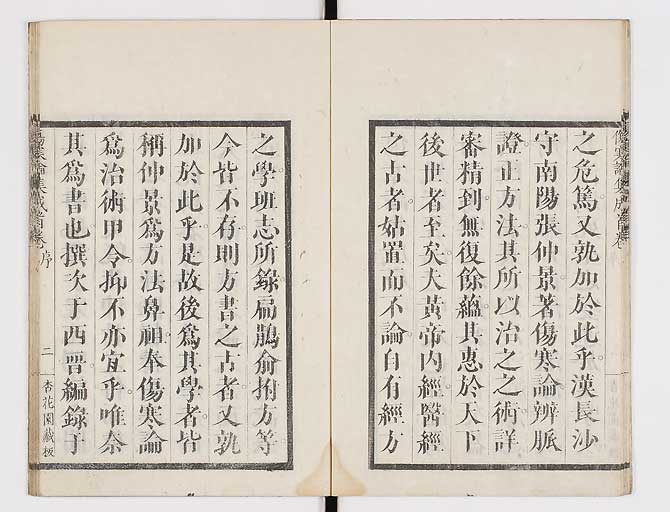 之危篤又孰加於此乎漢長沙
守南陽張仲景著傷寒論辨脈
證正方法其所以治之之術詳
審精到無復餘蘊其惠於天下
後世者至矣夫黃帝內經醫經
之古者姑置而不論自有經方
之學班志所錄扁鵲俞拊方等
今皆不存則方書之古者又孰
加於此乎是故後爲其學者皆
稱仲景爲方法鼻祖奉傷寒論
爲治術甲令抑不亦宜乎唯奈
其爲書也撰次于西晋編錄于
傷寒論集成首卷 序 二 杏花園藏板